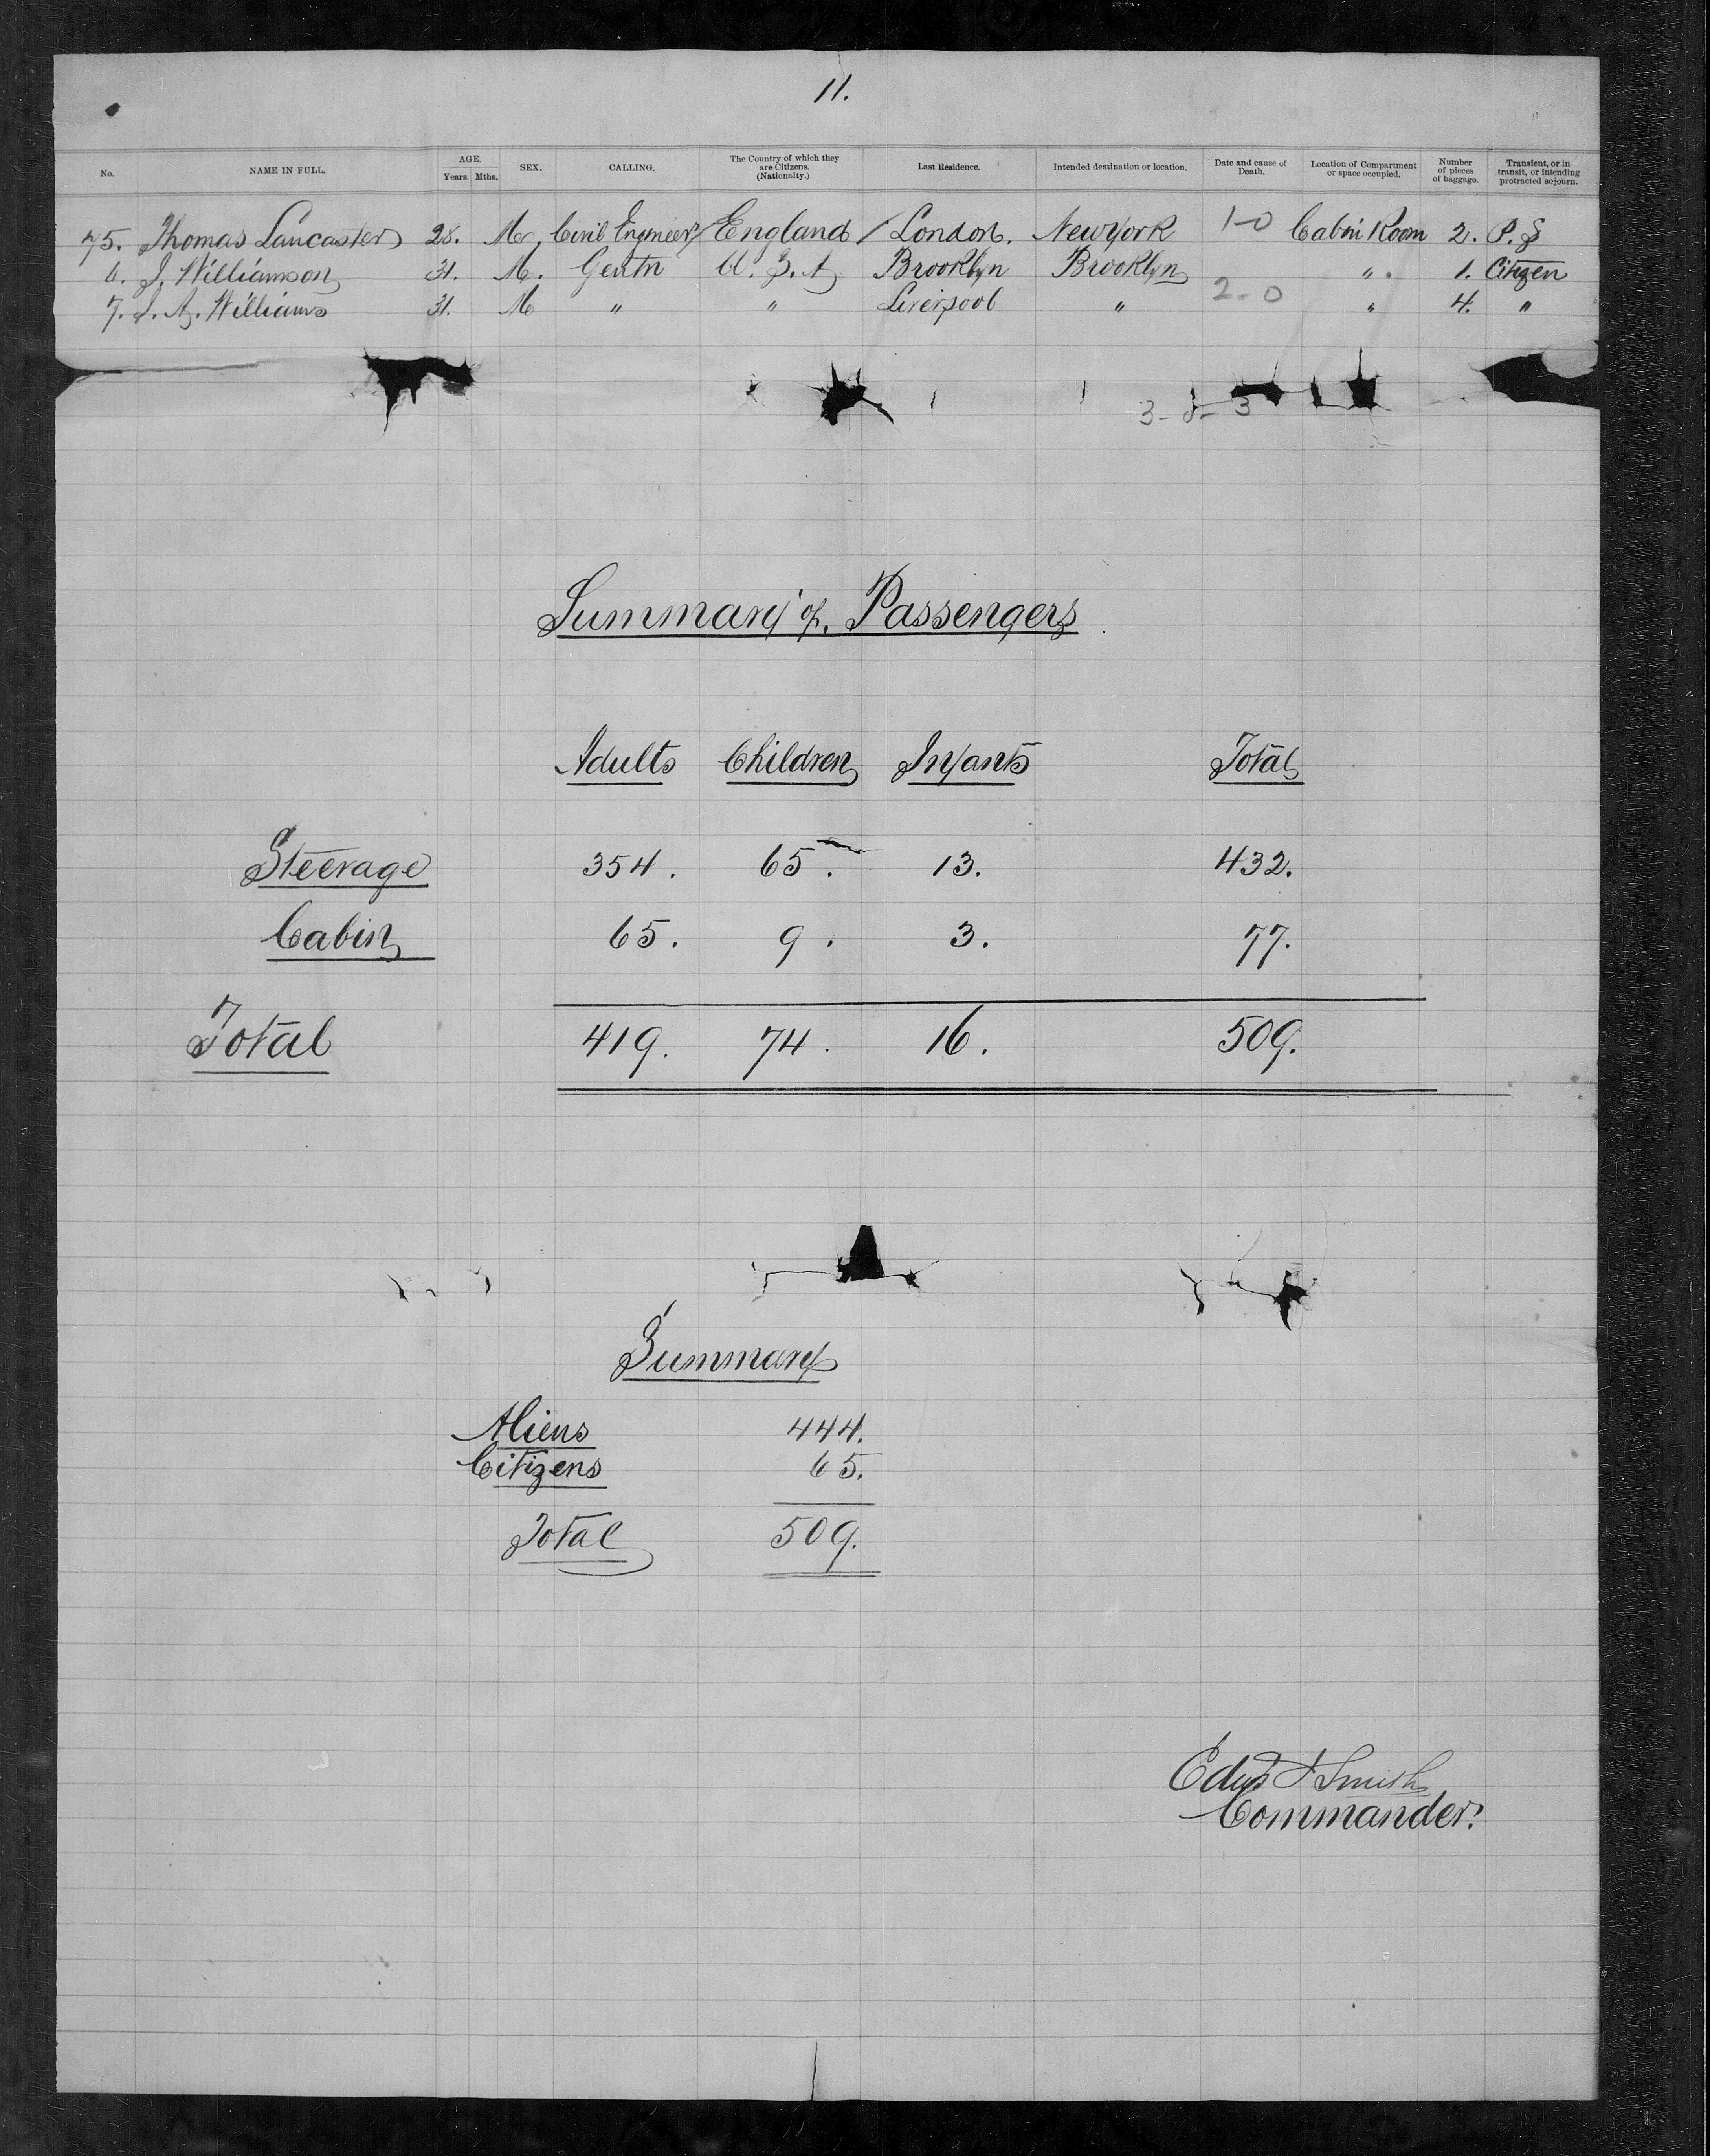 11.
No. NAME IN FULL. AGE. Years. Mths. SEX. CALLING. The Country of which they are Citizens. (Nationalty.) Last Residence. Intended destination or location. Date and cause of Death. Location of Compartment or space occupied. Number of pieces of baggage. Transient, or in transit, or intending protracted sojourn.
75. Thomas Lancaster 28. M. Civil Engineer England London. New York 1-0 Cabin Room 2. P. S
6. J. Williamson 31. M. Gentn U. S. A Brooklyn Brooklyn " 1. Citizen
7. J. A. Williams 31. M " " Liverpool " 2-0 " 4. "
3-0-3
Summary of Passengers
Adults Children Infants Total
Steerage 354. 65. 13. 432.
Cabin 65. 9. 3. 77.
Total 419. 74. 16. 509.
Summary
Aliens 444.
Citizens 65.
Total 509.
Smith
Commander.